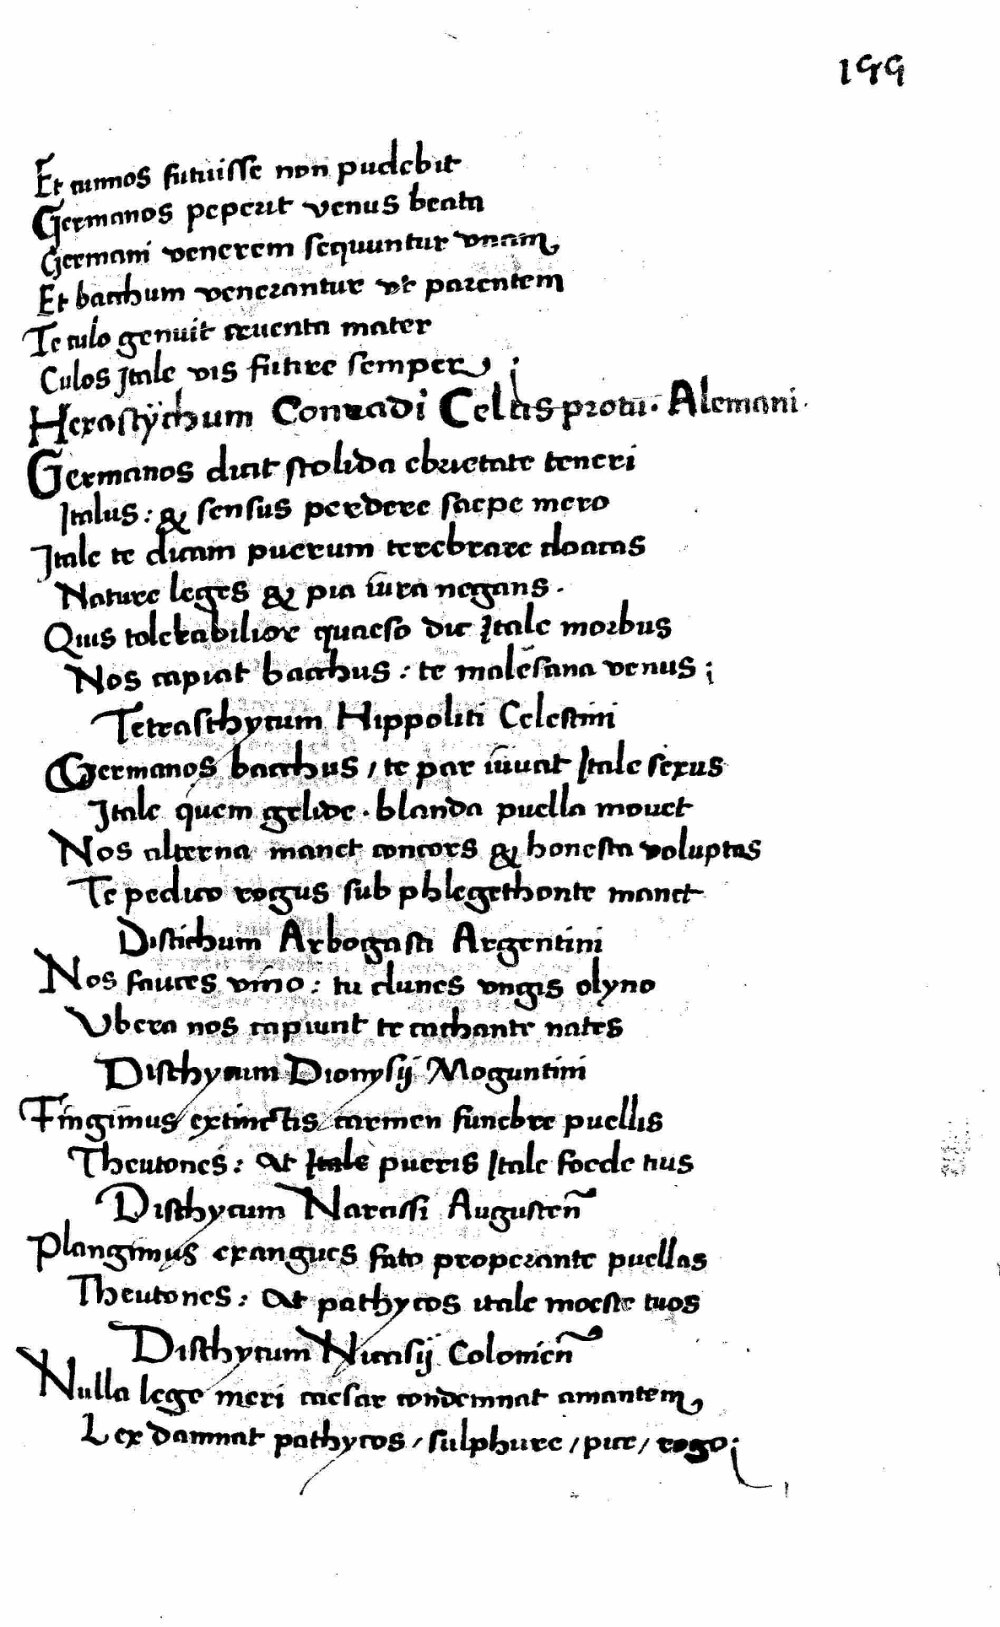 199
Et cunnos futuisse non pudebit
Germanos peperit venus beata
Germani venerem sequuntur vnam
Et bacchum venerantur vt parentem
Te culo genuit cruenta mater
Culos Itale vis futire semper;
Hexastÿchum Conradi Celtis protu. Alemani.
Germanos dicit stolida ebrietate teneri
Italus: & sensus perdere saepe mero
Itale te dicam puerum terebrare cloacas
Nature leges & pia iura negans.
Quis tolerabilior quaeso dic Itale morbus
Nos capiat bacchus: te malesana venus;
Tetrasthycum Hippoliti Celestini
Germanos bacchus / te par iuuat Itale sexus
Itale quem gelide. blanda puella mouet
Nos alterna manet concors & honesta voluptas
Te pedico rogus sub phlegethonte manet
Distichum Arbogasti Argentini
Nos fauces vino: tu clunes vngis olyuo
Vbera nos capiunt te cachante nates
Disthycum Dionysij Moguntini
Fingimus extinctis carmen funebre puellis
Theutones: At Itale pueris Itale foede tuis
Disthycum Narcissi Augusten̄
Plangimus exangues fato properante puellas
Theutones: At pathycos itale moeste tuos
Disthycum Nicasij Colonien̄
Nulla lege meri caesar condemnat amantem
Lex damnat pathycos / sulphure / pice / rogo;